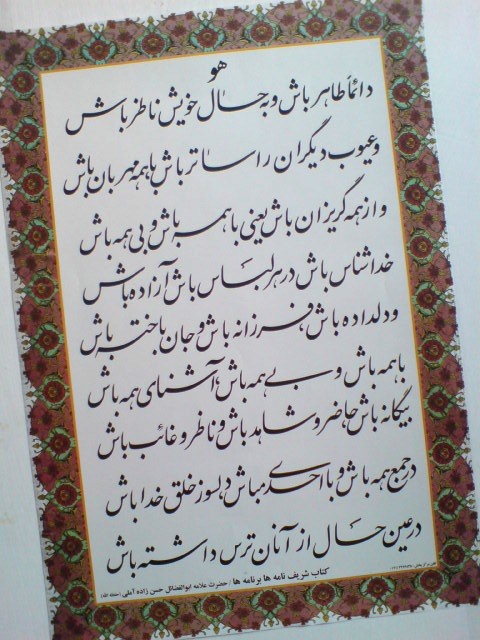 هو
دائماً طاهر باش و به حال خویش ناظر باش
و عیوب دیگران را ساتر باش با همه مهربان باش
و از همه گریزان باش یعنی با همه باش و بی همه باش
خداشناس باش در هر لباس باش آزاده باش
و دلداده باش، فرزانه باش و جان باخته باش
با همه باش و بی همه باش، آشنای همه باش
بیگانه باش حاضر و شاهد باش و ناظر و غائب باش
در جمع همه باش و با احدی مباش دلسوز خلق خدا باش
در عین حال از آنان ترس داشته باش
کتاب شریف نامه ها برنامه ها (حضرت علامه ابوالفضائل حسن زاده آملی (حفظه الله